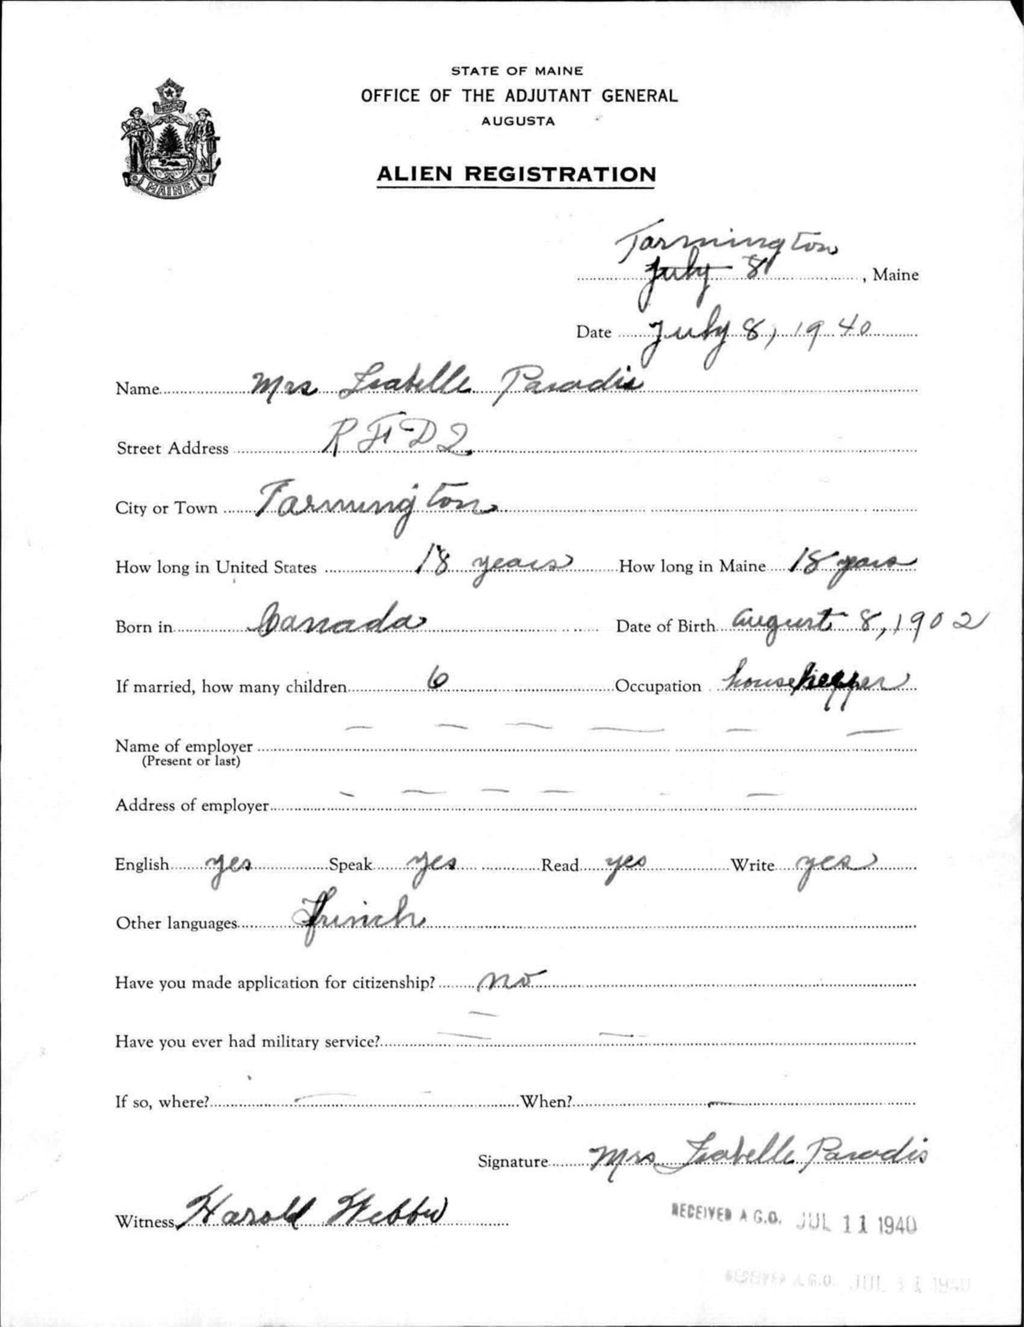 STATE OF MAINE
OFFICE OF THE ADJUTANT GENERAL
AUGUSTA
ALIEN REGISTRATION
MAINE
Farmington
July 8, Maine
Date July 8, 1940
Name Mrs Isabelle Paradis
Street Address R F D 2
City or Town Farmington
How long in United States 18 years How long in Maine 18 years
Born in Canada Date of Birth August 8, 1902
If married, how many children 6 Occupation housekepper
Name of employer
(Present or last)
Address of employer
English yes Speak yes Read yes Write yes
Other languages French
Have you made application for citizenship? no
Have you ever had military service?
If so, where? When?
Signature Mrs Isabelle Paradis
Witness Harold Webber
RECEIVED A.G.O. JUL 11 1940
RECEIVED A.G.O. JUL 11 1940